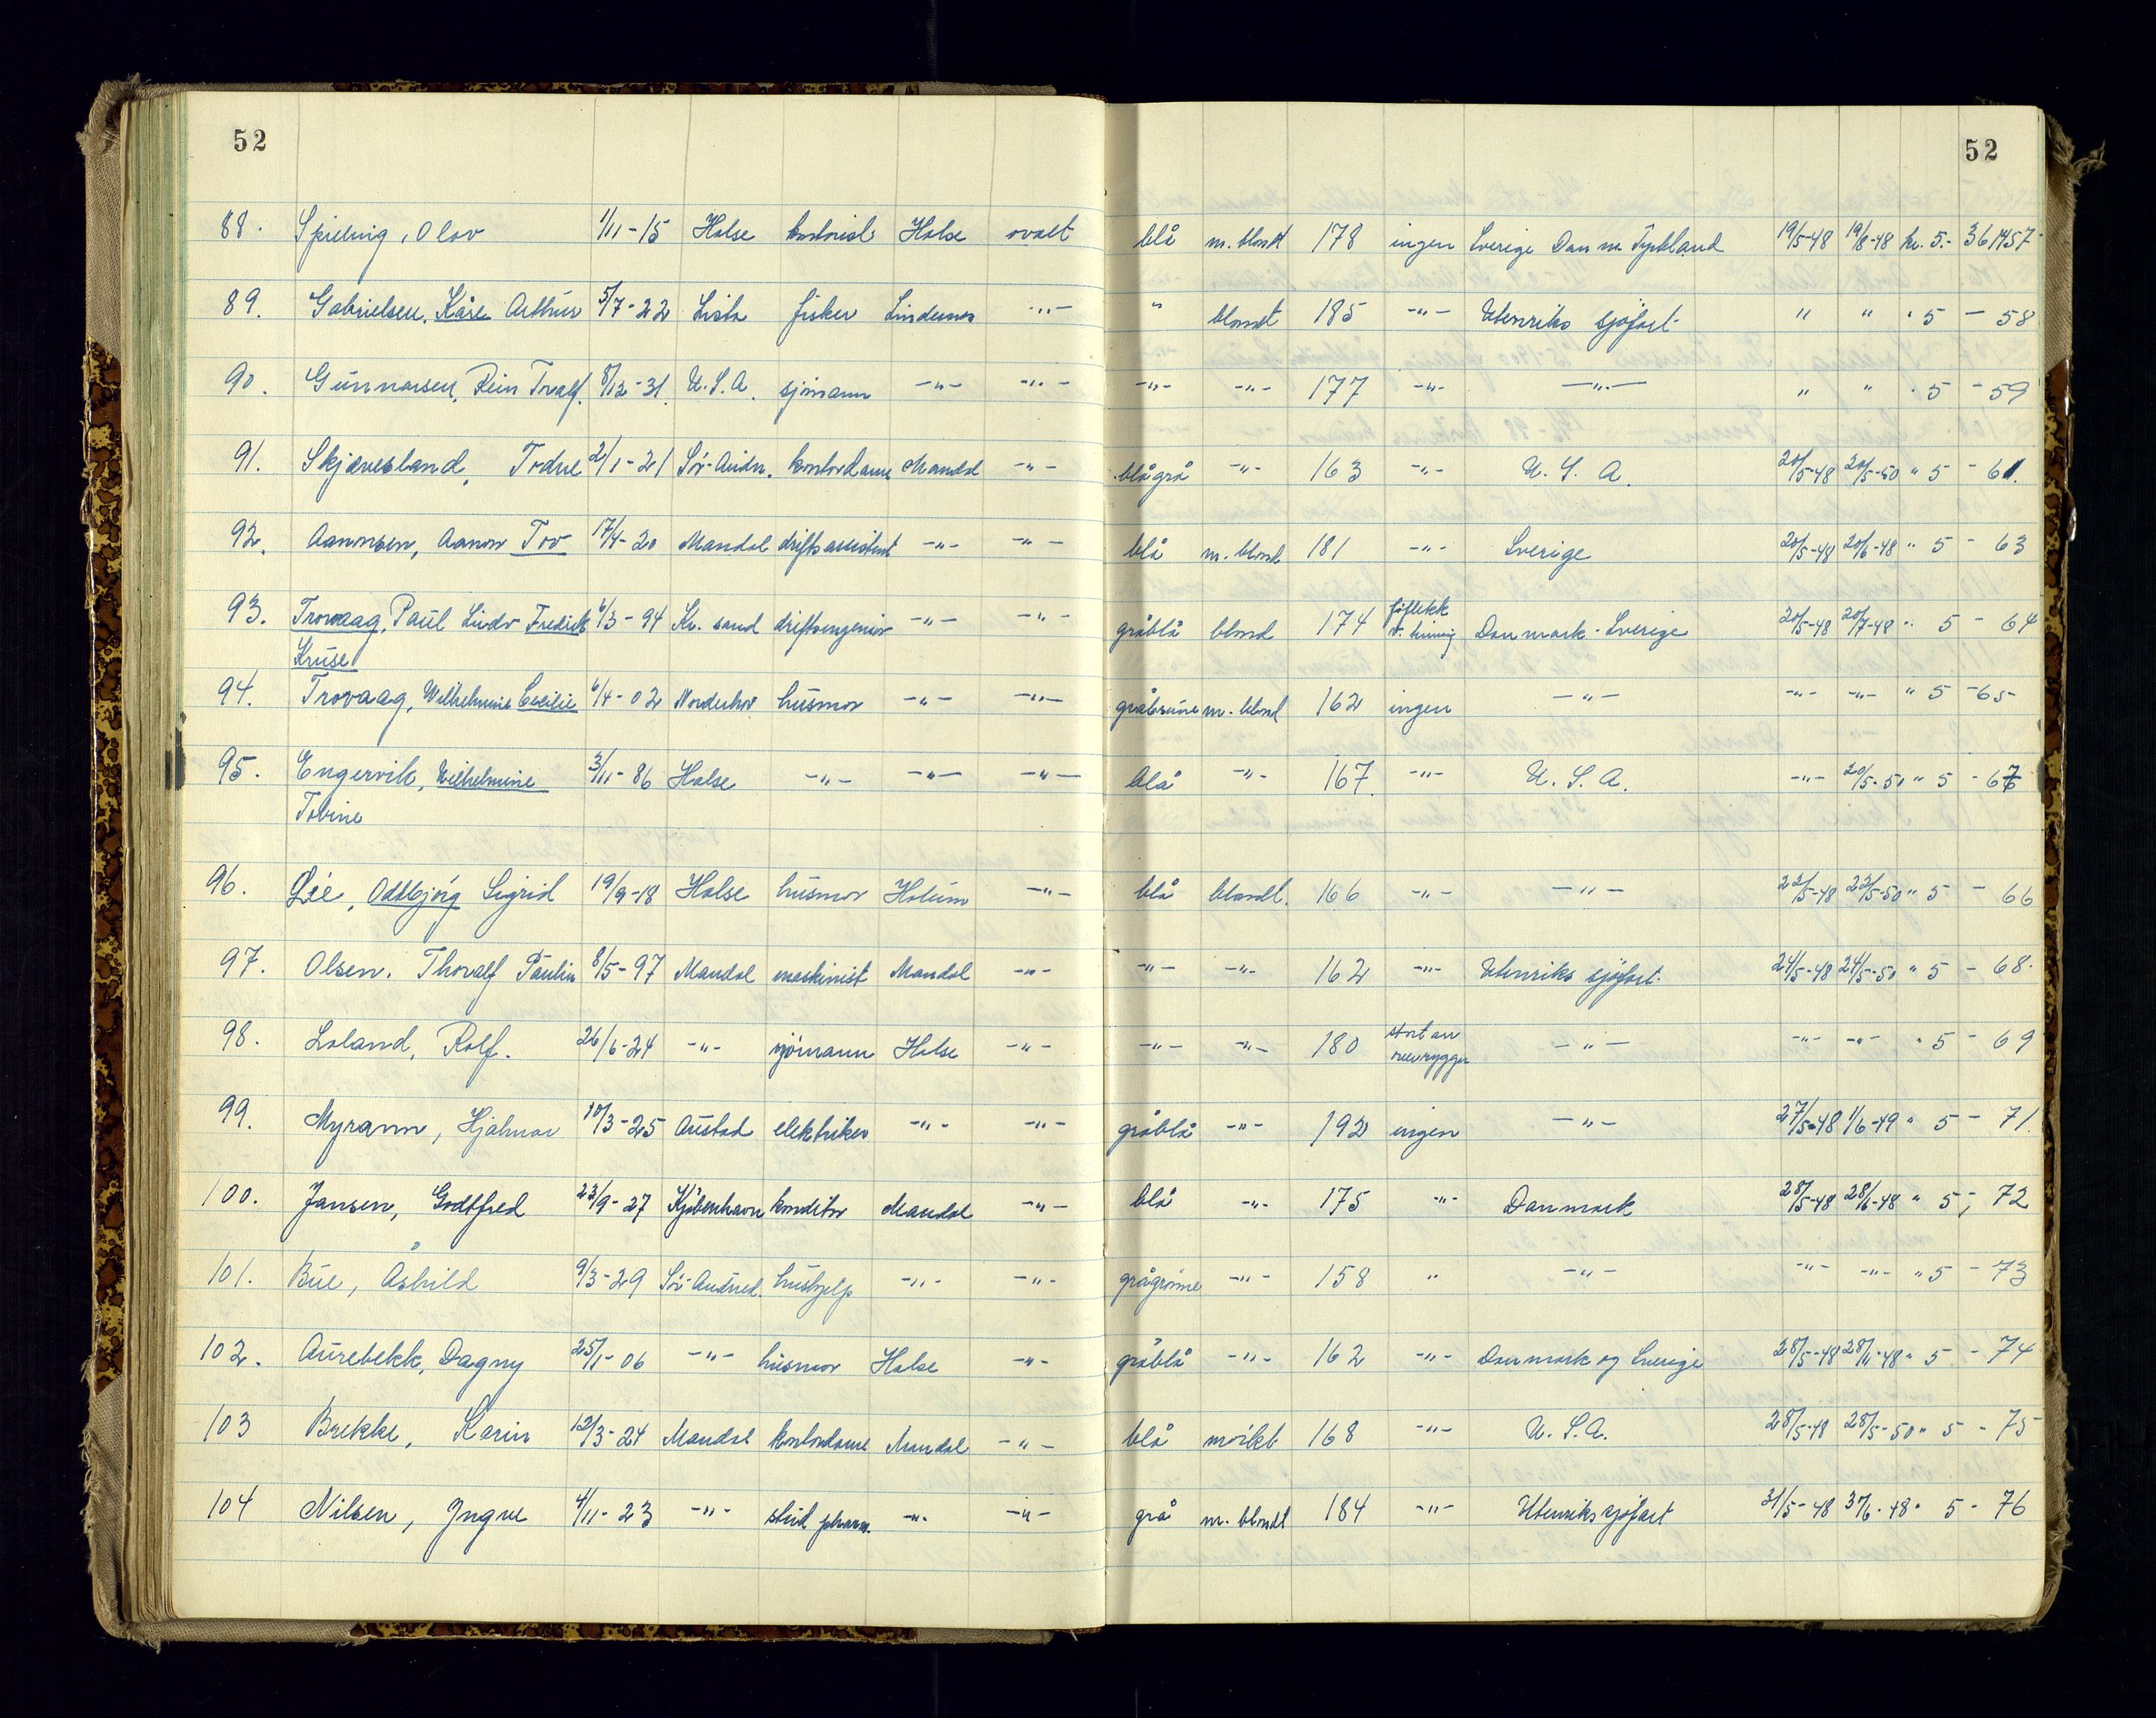 52 52
88. Spieling, Olav 1/11-15 Halse kontorist Halse ovalt blå m. blondt 178 ingen Sverige Danm. Tyskland 19/5-48 19/8-48 kr. 5.- 361457
89. Gabrielsen, Kåre Arthur 5/7-22 Lista fisker Lindesnes -"- " blondt 185 -"- Utenriks sjøfart " " " 5 - 58
90. Gunnarsen, Rein Toralf. 8/12-31 U.S.A. sjømann -"- -"- -"- -"- 177 -"- -"- " " " 5 - 59
91. Skjævesland, Todne 2/1-21 Sør-Audn. kontordame Mandal -"- blågrå -"- 163 -"- U.S.A. 20/5-48 20/5-50 " 5 - 61.
92. Aanonsen, Aanon Tov 17/4-20 Mandal driftsassistent -"- -"- blå m. blond 181 -"- Sverige 20/5-48 20/6-48 " 5 - 63
93. Trovaag, Paul Lindv Fredrik 6/3-94 Kr. sand driftsingeniør -"- -"- gråblå blond 174 føflekk Danmark-Sverige 20/5-48 20/7-48 " 5 - 64
Kruse
94. Trovaag, Wilhelmine Cecilie 6/4-02 Norderhov husmor -"- -"- gråbrune m. blond 162 ingen -"- -"- -"- " 5 - 65
95. Engervik, Wilhelmine 3/11-86 Halse -"- -"- -"- blå -"- 167. -"- U.S.A. -"- 20/5-50 " 5 - 67
Tobine
96. Lie, Oddbjørg Sigrid 19/9-18 Halse husmor Holum -"- blå blondt. 166 -"- -"- 22/5-48 22/5-50 " 5 - 66
97. Olsen, Thoralf Paulin 8/5-97 Mandal maskinist Mandal -"- -"- -"- 162 -"- Utenriks sjøfart. 24/5-48 24/5-50 " 5 - 68.
98. Loland, Rolf. 26/6-24 -"- sjømann Halse -"- -"- -"- 180 stort arr -"- -"- -"- " 5 - 69
99. Myrann, Hjalmar 10/3-25 Austad elektriker -"- -"- gråblå -"- 192 ingen -"- 27/5-48 1/6-49 " 5 - 71.
100. Jansen, Godtfred 23/9-27 Kjøbenhavn konditor Mandal -"- blå -"- 175 -"- Danmark 28/5-48 28/6-48 " 5,- 72
101. Bue, Åshild 9/3-29 Sør-Audned. hushjelp -"- -"- grågrønne -"- 158 " -"- -"- -"- " 5 - 73
102. Aurebekk, Dagny 25/1-06 -"- husmor Halse -"- gråblå -"- 162 -"- Danmark og Sverige 28/5-48 28/11-48 " 5 - 74
103 Brekke, Karin 12/3-24 Mandal kontordame Mandal -"- blå mørkt 168 -"- U.S.A. 28/5-48 28/5-50 " 5 - 75
104 Nilsen, Yngve 4/11-23 -"- stud pharm. -"- -"- grå m. blondt 184 -"- Utenriks sjøfart 31/5-48 " 5 - 76